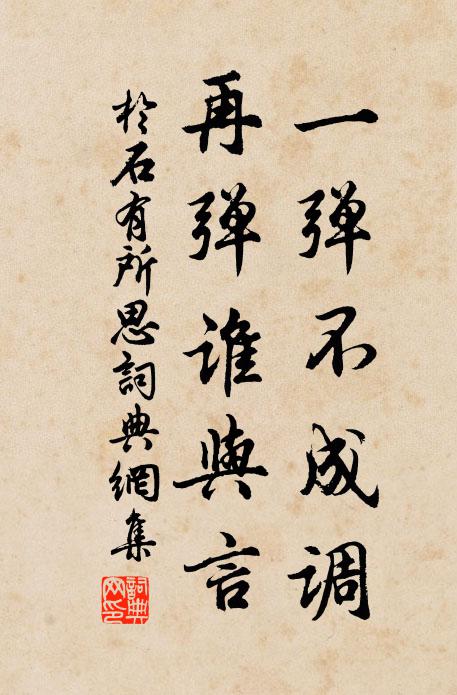 一弹不成调
再弹谁與言
於石有所思詞典網集
詞典网印